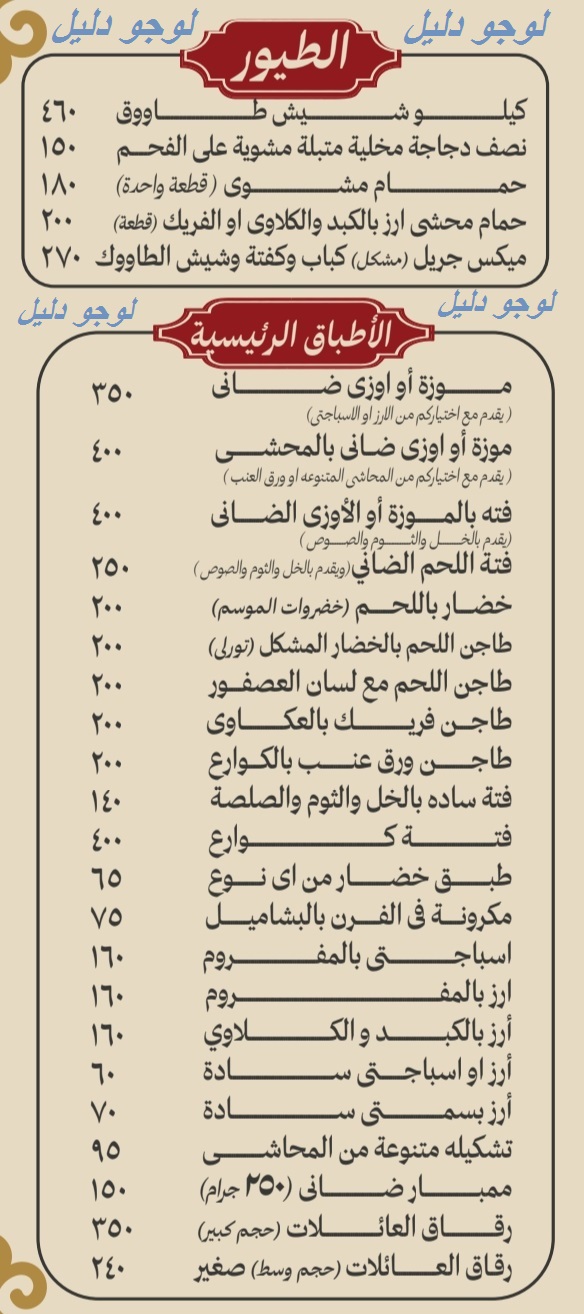 لوجو دليل
لوجو دليل
الطيور
كيلو شيش طاووق ٤٦٠
نصف دجاجة مخلية متبلة مشوية على الفحم ١٥٠
حمام مشوى (قطعة واحدة) ١٨٠
حمام محشى ارز بالكبد والكلاوى او الفريك (قطعة) ٢٠٠
ميكس جريل (مشكل) كباب وكفتة وشيش الطاووك ٢٧٠
لوجو دليل
لوجو دليل
الأطباق الرئيسية
موزة أو اوزى ضانى ٣٥٠
(يقدم مع اختياركم من الارز او الاسباجتى)
موزة أو اوزى ضانى بالمحشى ٤٠٠
(يقدم مع اختياركم من المحاشى المتنوعه او ورق العنب)
فته بالموزة أو الأوزى الضانى ٤٠٠
(يقدم بالخل والثوم والصوص)
فتة اللحم الضاني (ويقدم بالخل والثوم والصوص) ٢٥٠
خضار باللحم (خضروات الموسم) ٢٠٠
طاجن اللحم بالخضار المشكل (تورلى) ٢٠٠
طاجن اللحم مع لسان العصفور ٢٠٠
طاجن فريك بالعكاوى ٢٠٠
طاجن ورق عنب بالكوارع ٢٠٠
فتة ساده بالخل والثوم والصلصة ١٤٠
فتة كوارع ٤٠٠
طبق خضار من اى نوع ٦٥
مكرونة فى الفرن بالبشاميل ٧٥
اسباجتى بالمفروم ١٦٠
ارز بالمفروم ١٦٠
أرز بالكبد و الكلاوي ١٦٠
أرز او اسباجتى سادة ٦٠
أرز بسمتى سادة ٧٠
تشكيله متنوعة من المحاشى ٩٥
ممبار ضانى (٢٥٠ جرام) ١٥٠
رقاق العائلات (حجم كبير) ٣٥٠
رقاق العائلات (حجم وسط) صغير ٢٤٠